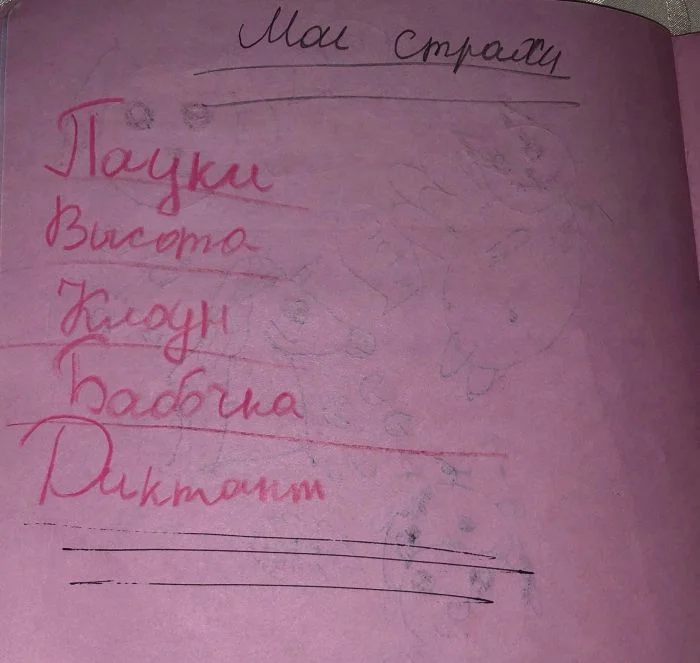 Мои страхи
Пауки
Высота
Клоун
Бабочка
Диктант